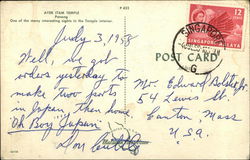 AYER ITAM TEMPLE
Penang
One of the many interesting sights in the Temple interior.
P 623
July 3, 1958
Well, we got
orders yesterday to
make two ports
in Japan then home.
"Oh Boy" Japan
Don
12
CENTS
SINGAPORE MALAYA
SINGAPORE
G
POST CARD
Mr. Edward
54 Lewis St.
Canton Mass
U.S.A.